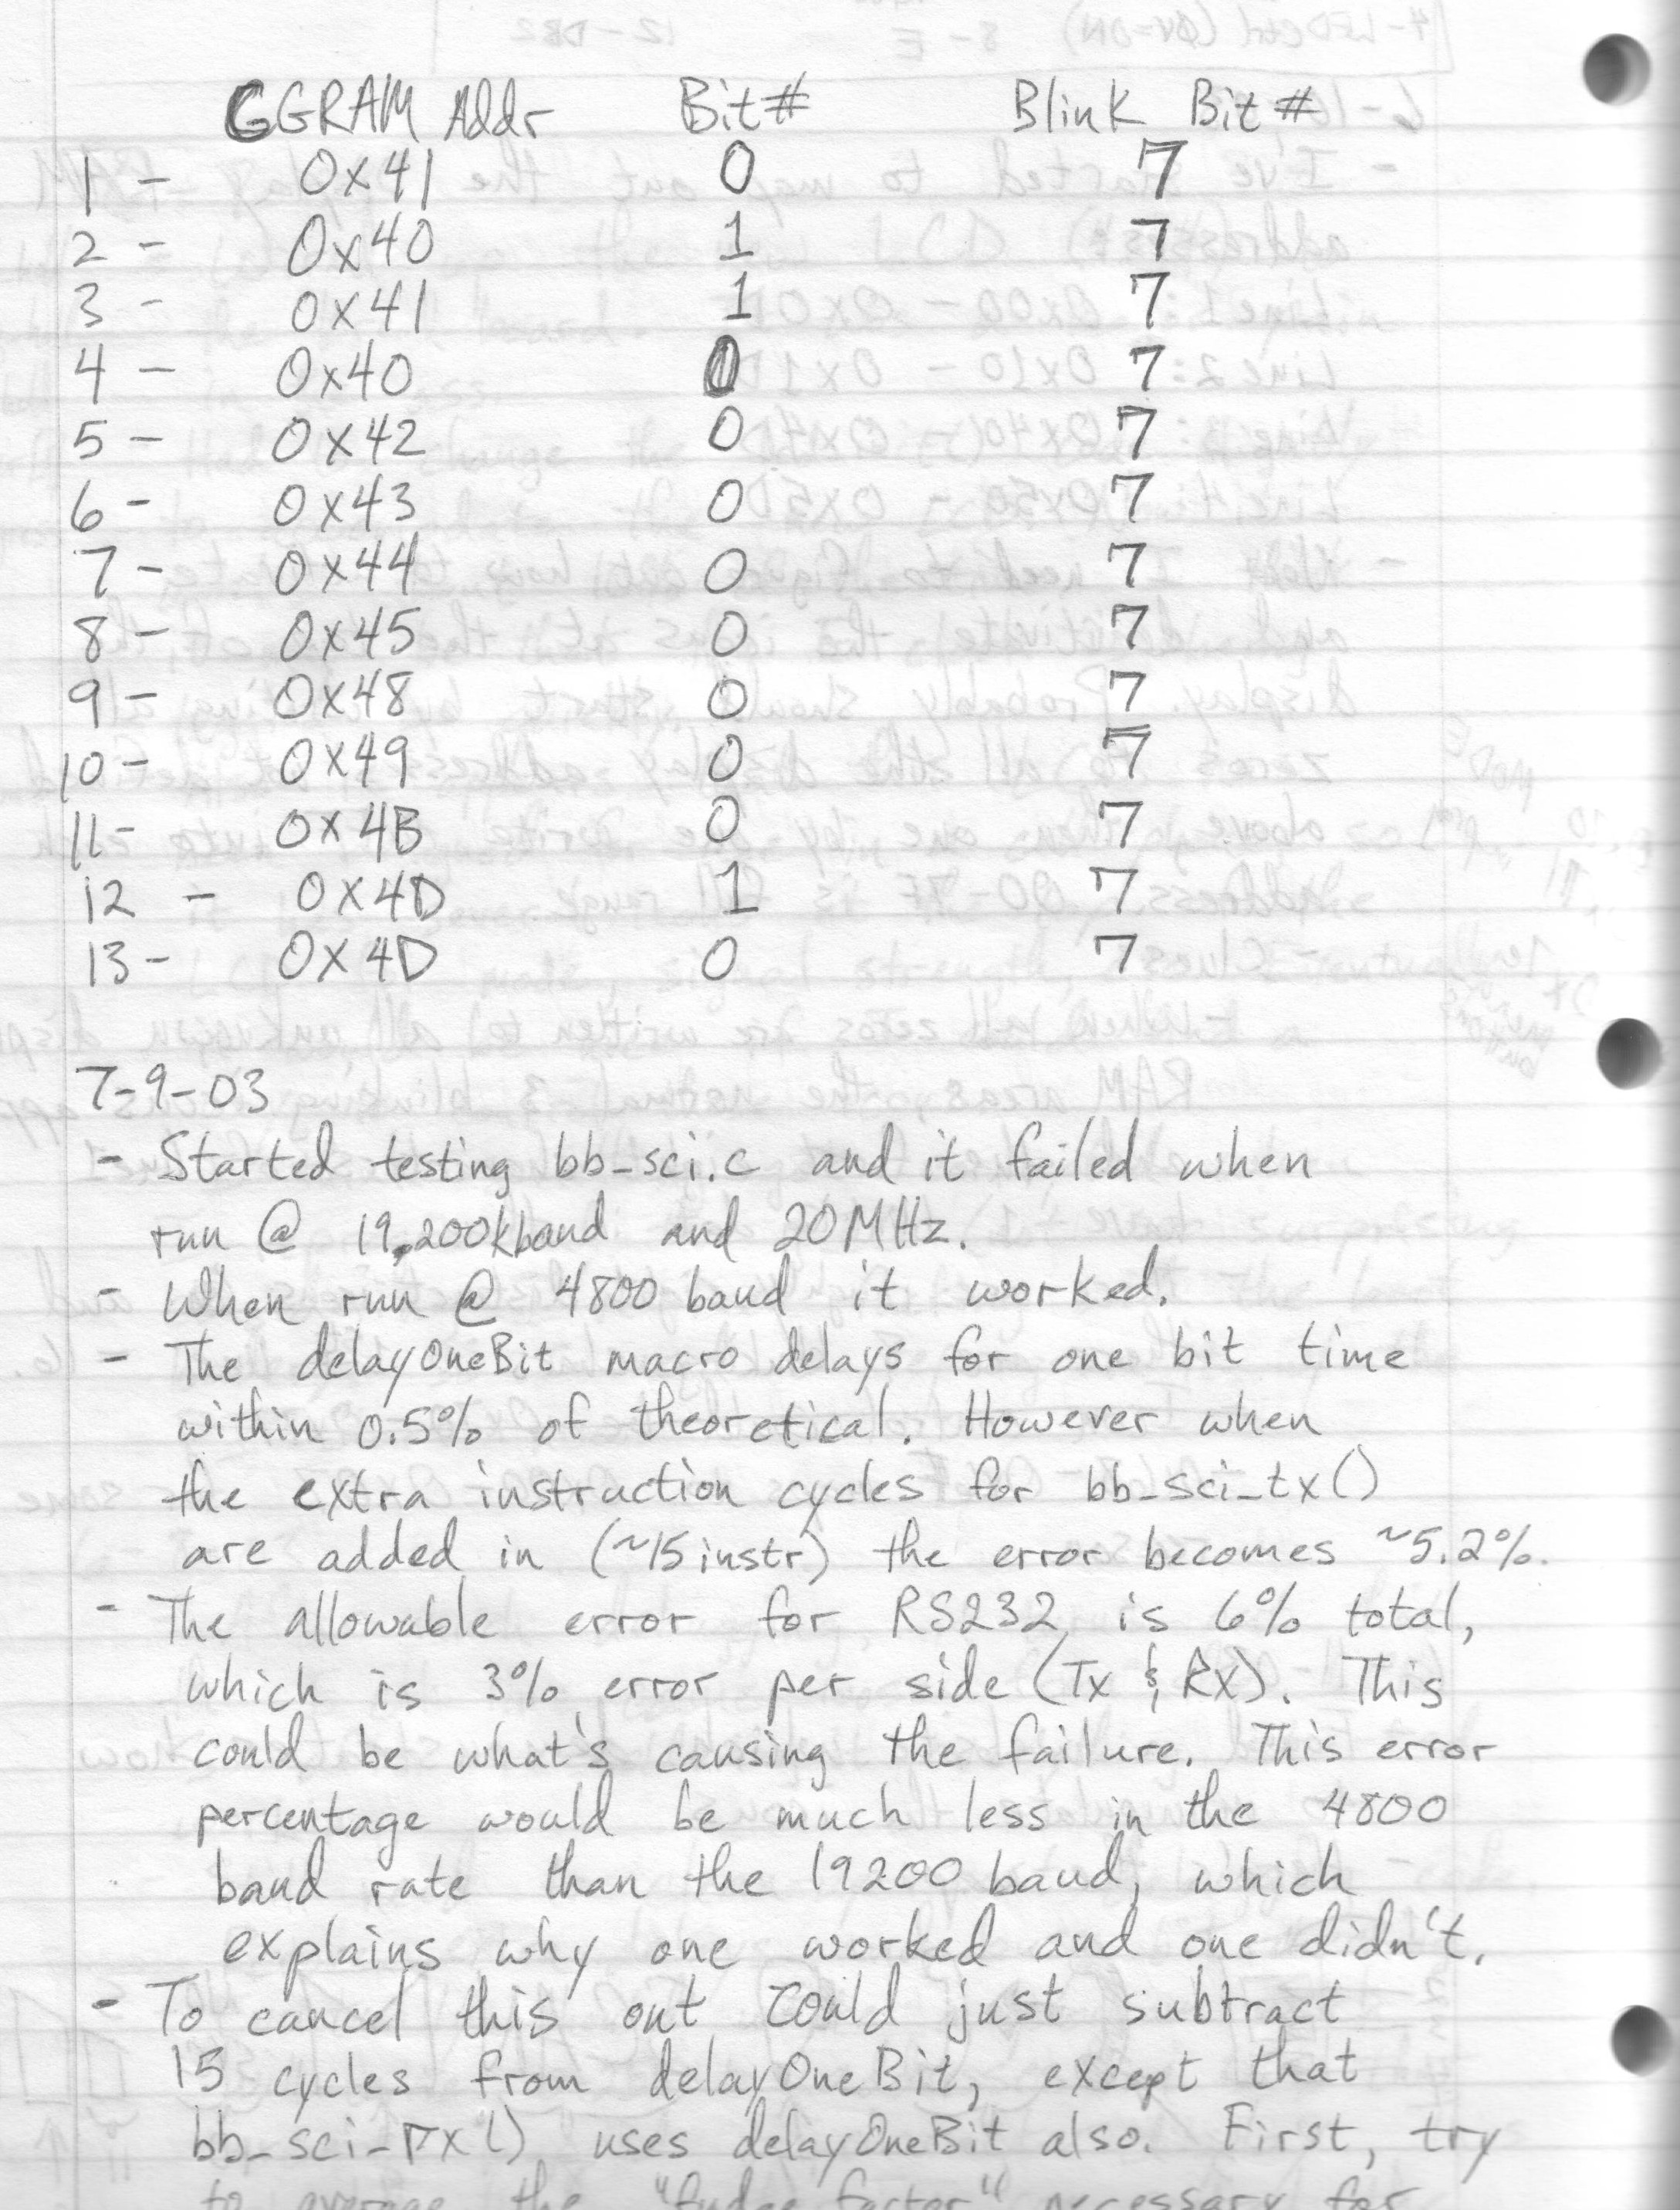 CGRAM Addr Bit# Blink Bit#
1 - 0x41 0 7
2 - 0x40 1 7
3 - 0x41 1 7
4 - 0x40 0 7
5 - 0x42 0 7
6 - 0x43 0 7
7 - 0x44 0 7
8 - 0x45 0 7
9 - 0x48 0 7
10 - 0x49 0 7
11 - 0x4B 0 7
12 - 0x4D 1 7
13 - 0x4D 0 7
7-9-03
- Started testing bb_sci.c and it failed when
run @ 19.200kbaud and 20MHz.
- When run @ 4800 baud it worked.
- The delayOneBit macro delays for one bit time
within 0.5% of theoretical. However when
the extra instruction cycles for bb_sci_tx()
are added in (~15 instr) the error becomes ~5.2%.
- The allowable error for RS232 is 6% total,
which is 3% error per side (Tx & Rx). This
could be what's causing the failure. This error
percentage would be much less in the 4800
baud rate than the 19200 baud, which
explains why one worked and one didn't.
- To cancel this out could just subtract
15 cycles from delayOneBit, except that
bb_sci_rx() uses delayOneBit also. First, try
to average the "fudge factor" necessary for